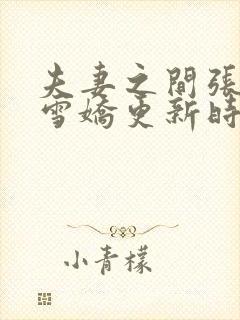 夫妻之間張
雪嬌更新時
小青檬